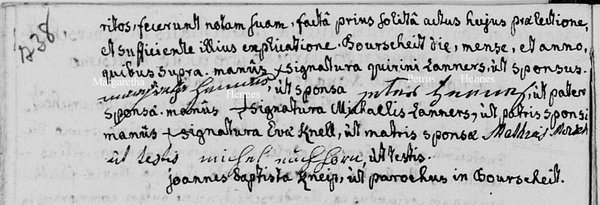 1738
ritos, fecerunt notam suam, factâ prius solitâ actus hujus prælectione,
et sufficiente illius explicatione. Bourscheit die, mense, et anno,
quibus supra. manûs + signatura quirini Lanners, ut sponsus.
Margaretha Hennes, ut sponsa Petrus Hennes, ut pater
sponsæ. manûs + signatura Michaelis Lanners, ut patris sponsi
manûs + signatura Evæ Knell, ut matris sponsæ Mathias
ut testis michel, ut testis.
Joannes Baptista Kneip, ut parochus in Bourscheit.